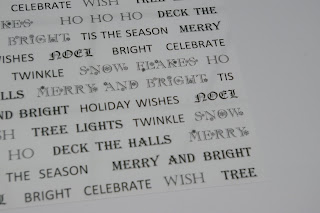 CELEBRATE WISH TREE
HO HO HO DECK THE
BRIGHT TIS THE SEASON MERRY
WISHES NOEL BRIGHT CELEBRATE
TWINKLE SNOW FLAKES HO
MERRY AND BRIGHT TIS
AND BRIGHT HOLIDAY WISHES NOEL
TREE LIGHTS TWINKLE SNOW
HO DECK THE HALLS MERRY
THE SEASON MERRY AND BRIGHT
BRIGHT CELEBRATE WISH TREE